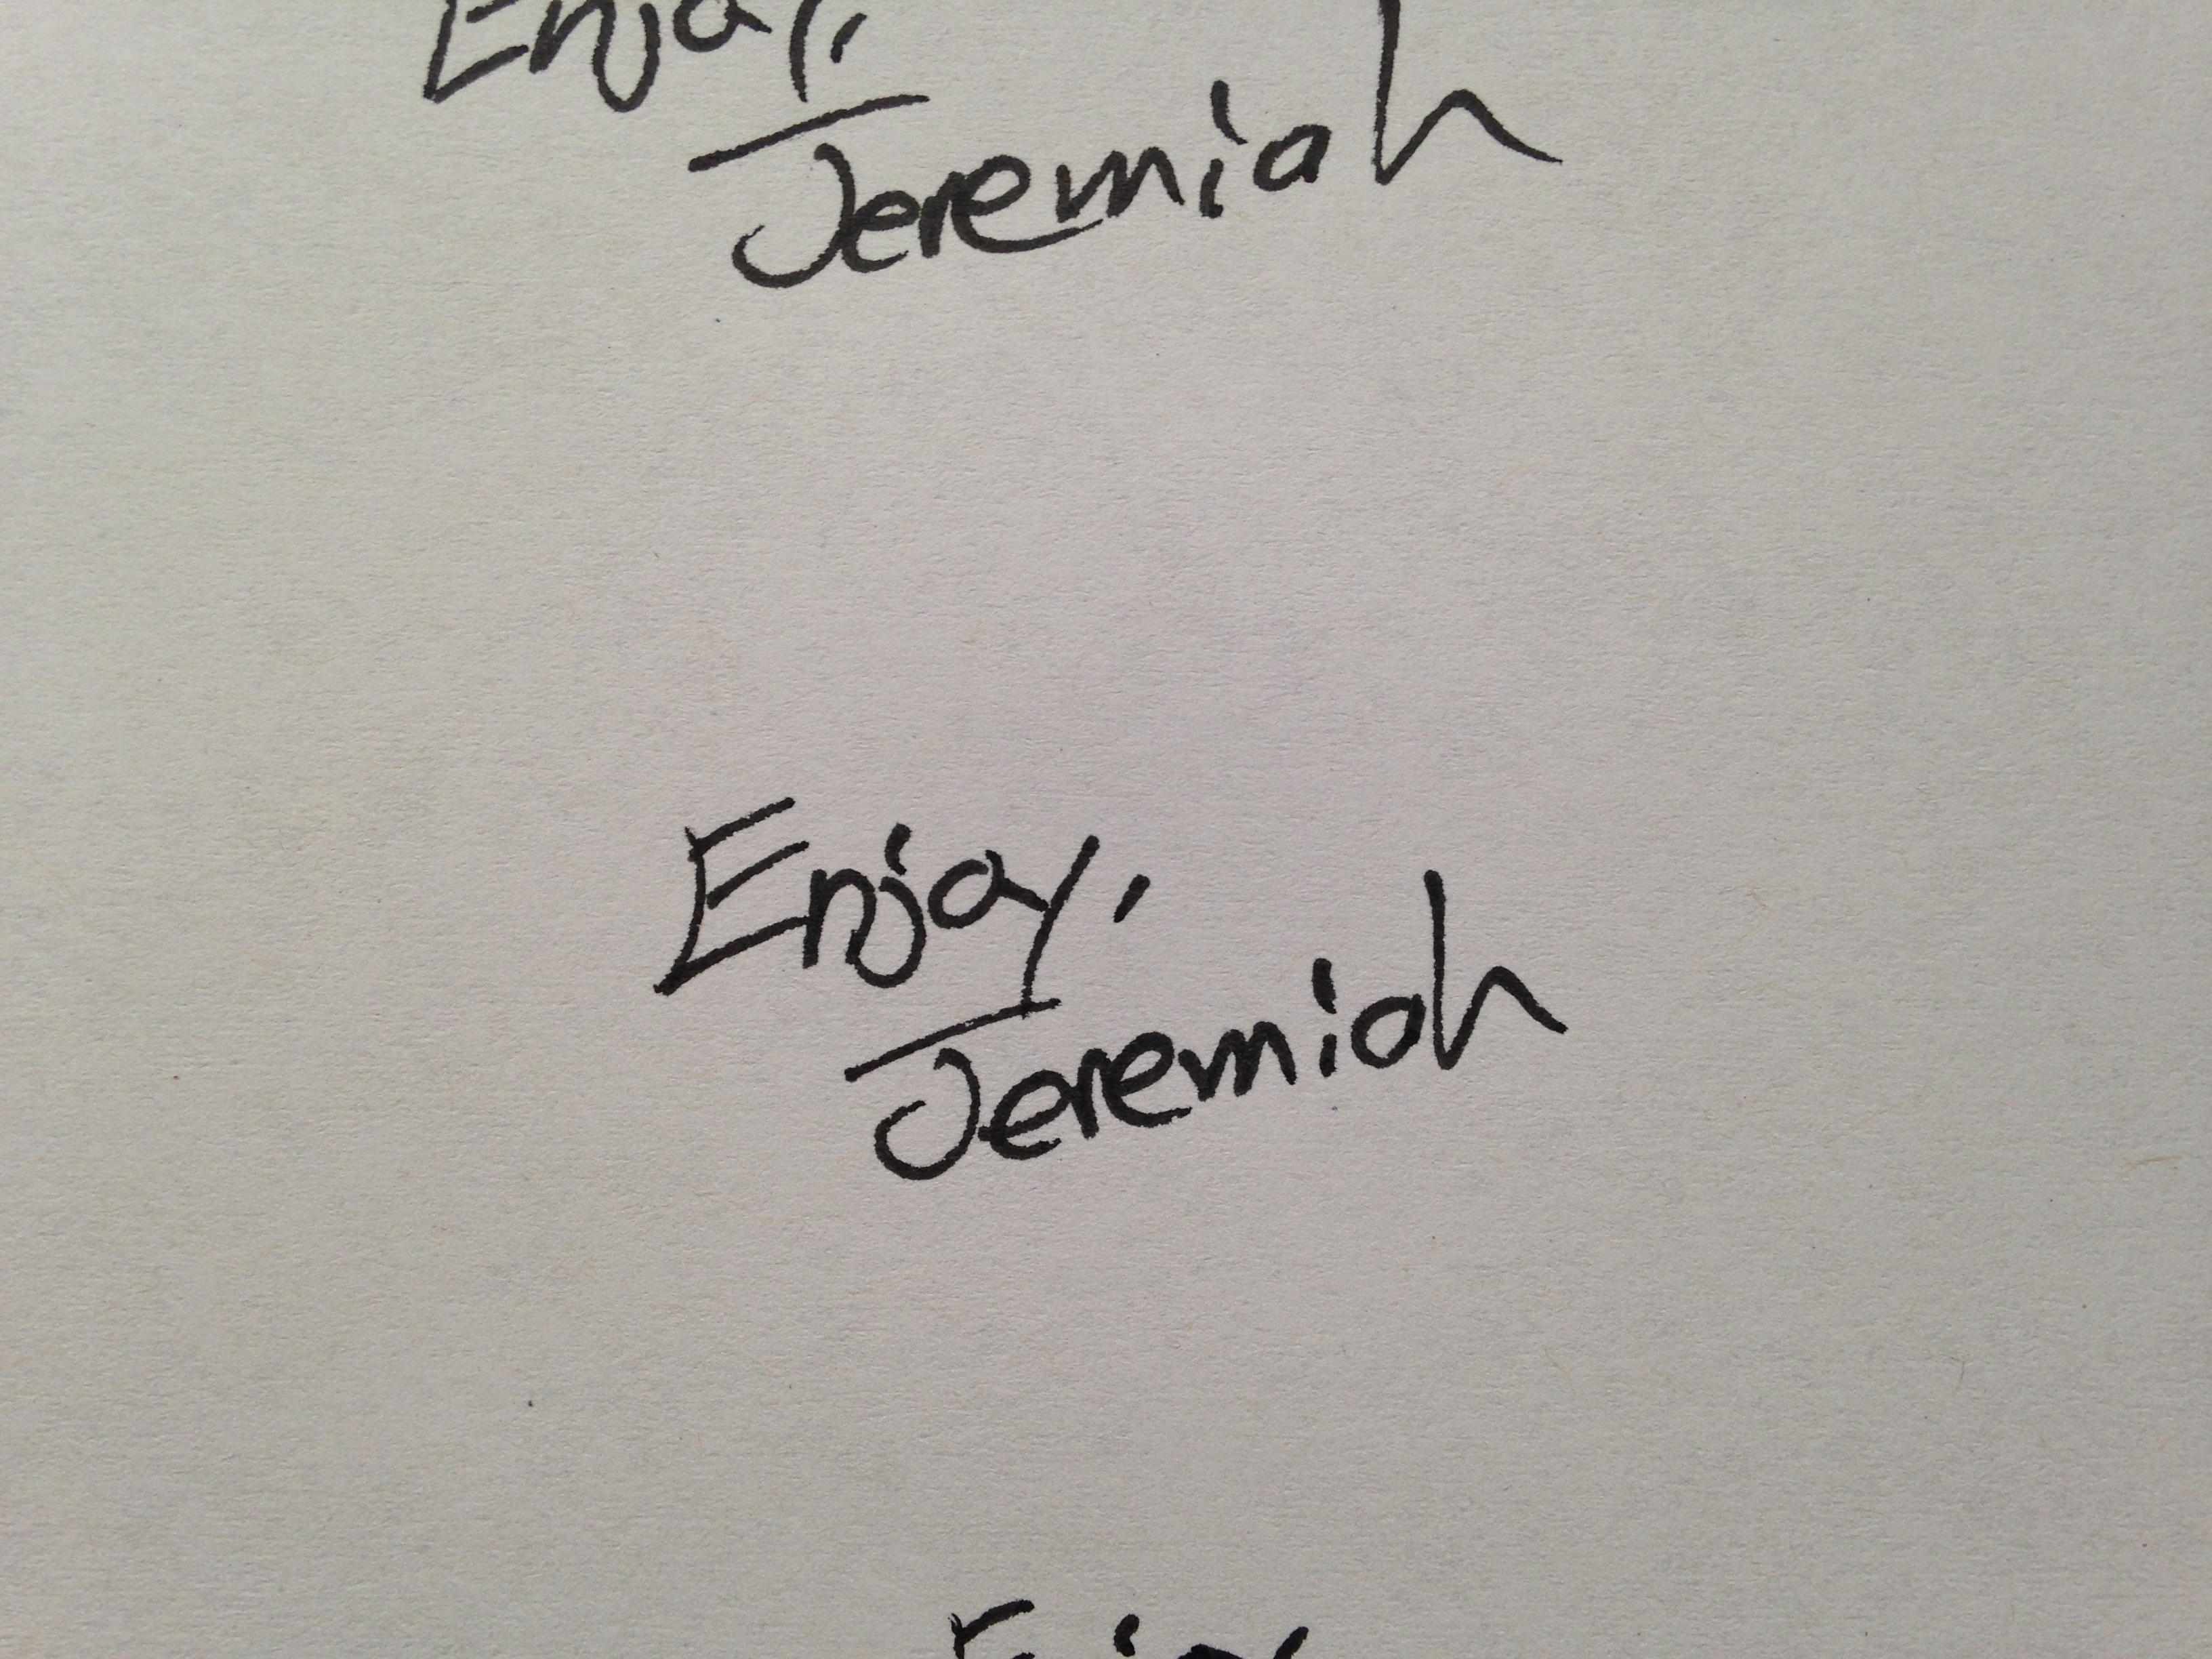 Enjoy,
Jeremiah
Enjoy,
Jeremiah
Enjoy